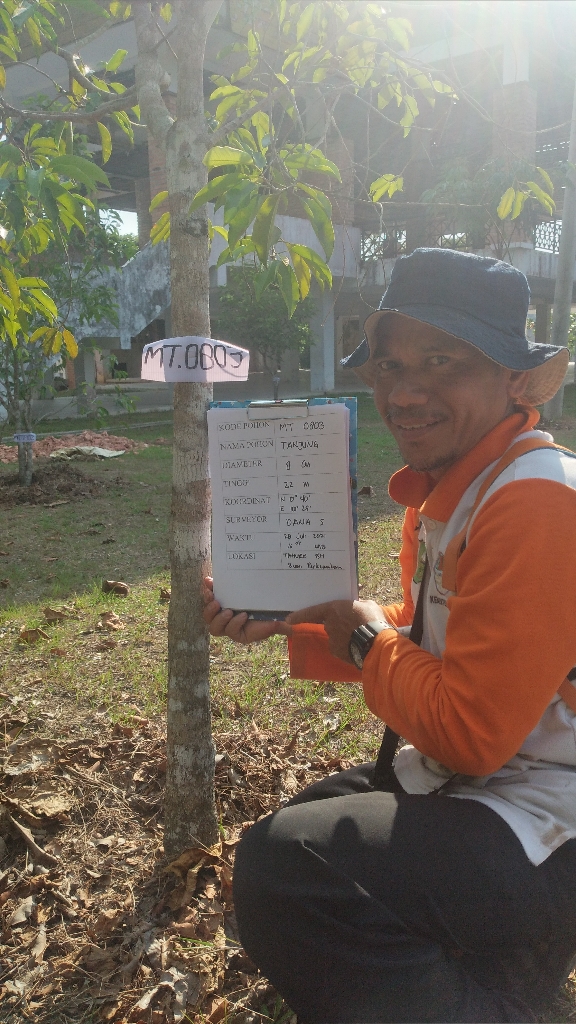 MT.0803
KODE POHON MT 0803
NAMA POHON TANJUNG
DIAMETER 9 Cm
TINGGI 22 m
KOORDINAT N 0° 40'
E
SURVEYOR DANA S
WAKTU 28 Juli
WIB
LOKASI
Bumi Perkemahan